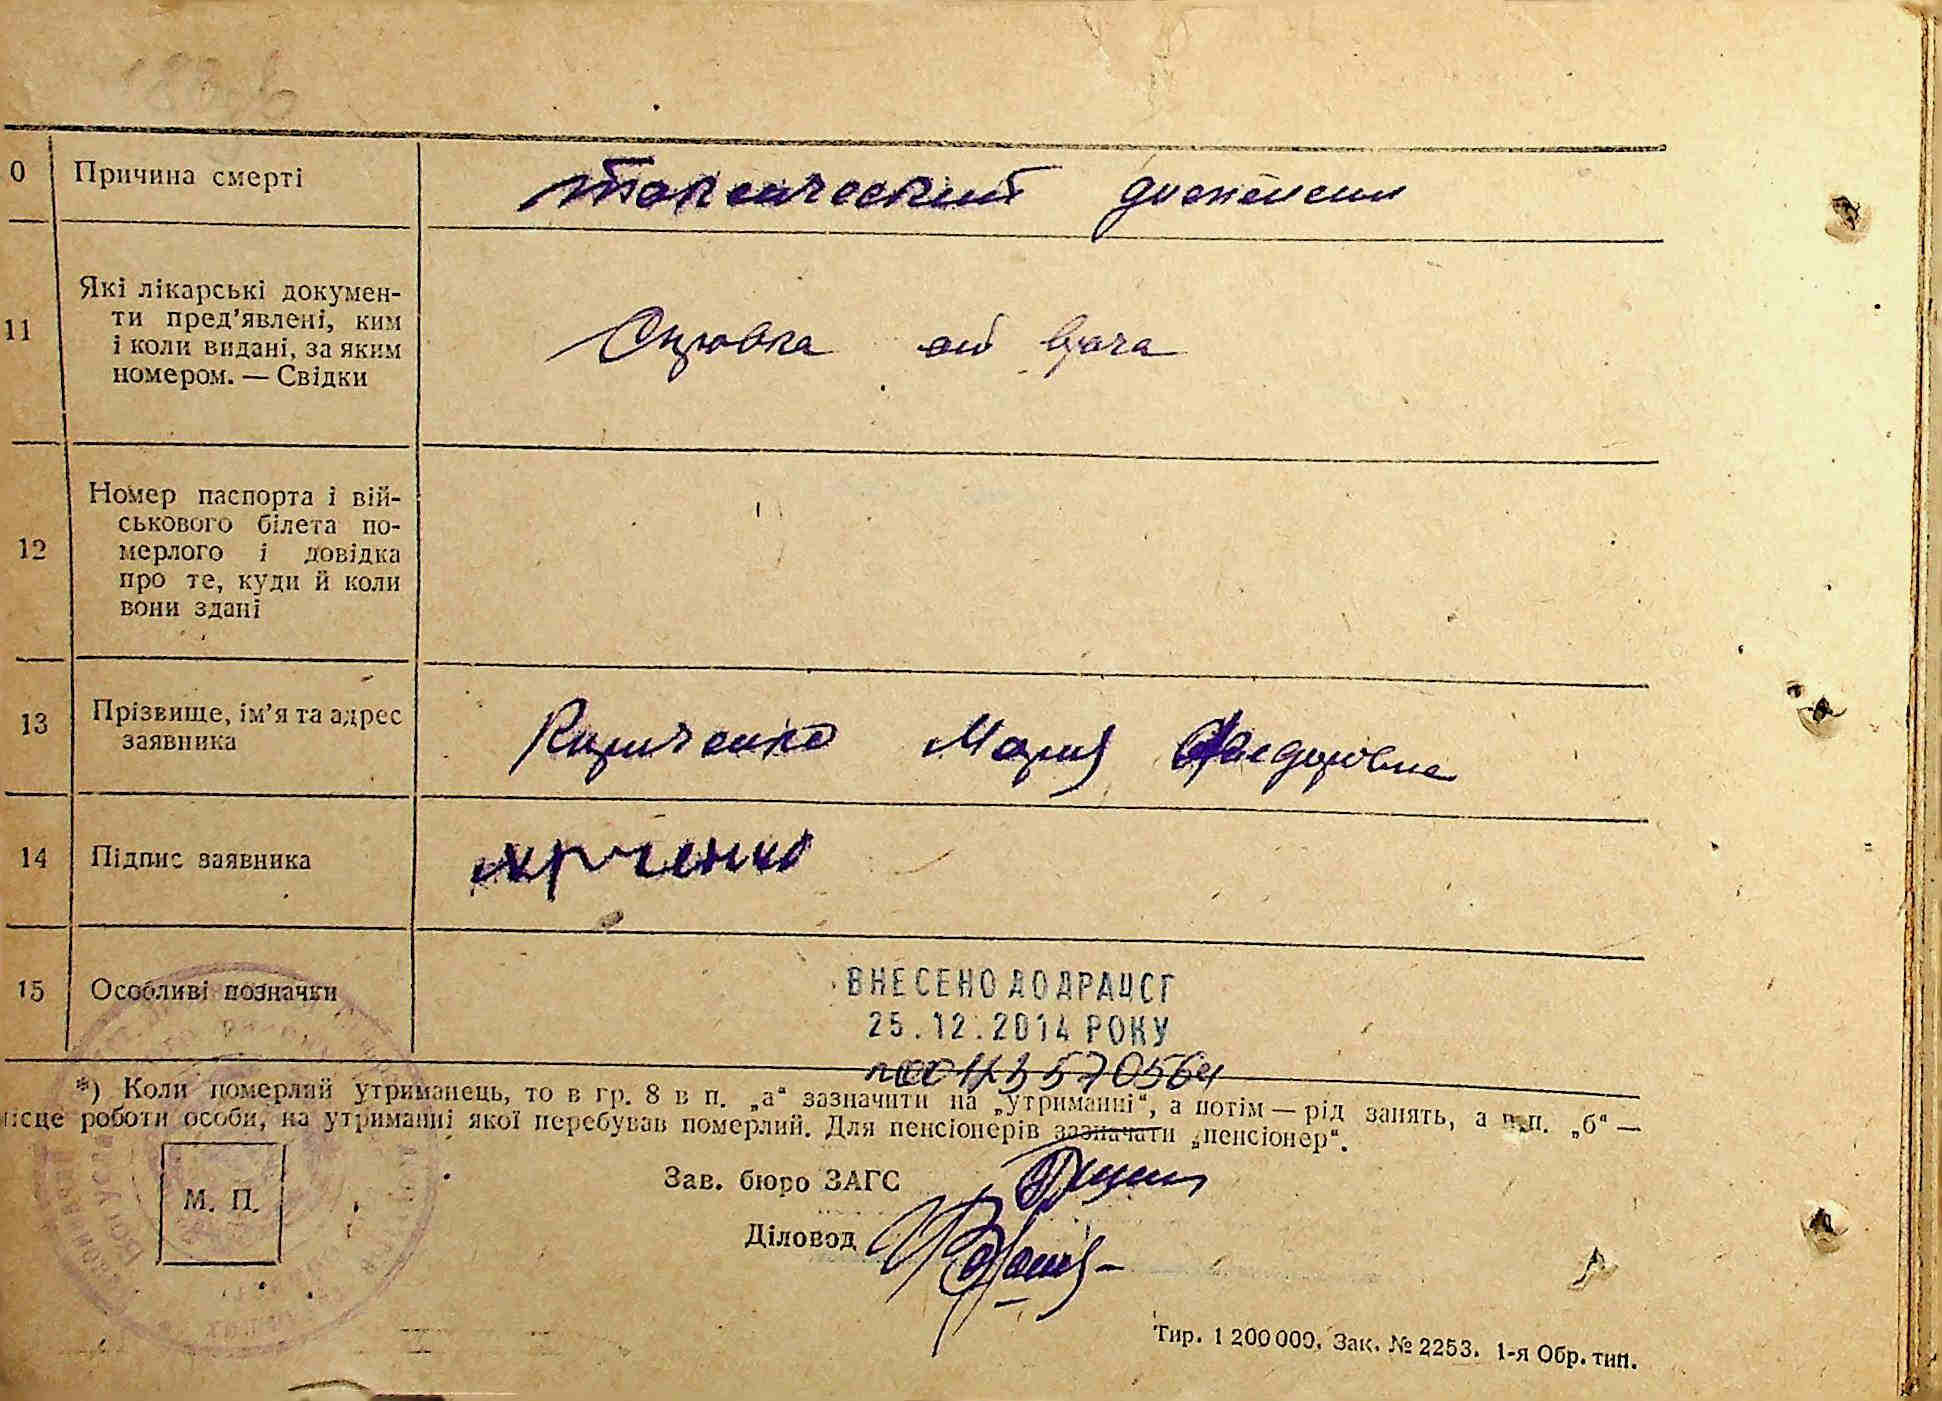 0 Причина смерті токсический диспепсии
11 Які лікарські докумен-
ти пред’явлені, ким
і коли видані, за яким
номером. — Свідки
Справка от врача
12 Номер паспорта і вій-
ськового білета по-
мерлого і довідка
про те, куди й коли
вони здані
13 Прізвище, ім’я та адрес
заявника
Кириченко Мария Федоровна
14 Підпис заявника
15 Особливі позначки
ВНЕСЕНО ДО ДРАЦСГ
25.12.2014 РОКУ
*) Коли померлий утриманець, то в гр. 8 в п. „а“ зазначити на „утриманні“, а потім — рід занять, а в п. „б“ —
місце роботи особи, на утриманні якої перебував померлий. Для пенсіонерів зазначати „пенсіонер“.
М. П.
Зав. бюро ЗАГС
Діловод
Тир. 1 200 000. Зак. № 2253. 1-я Обр. тип.